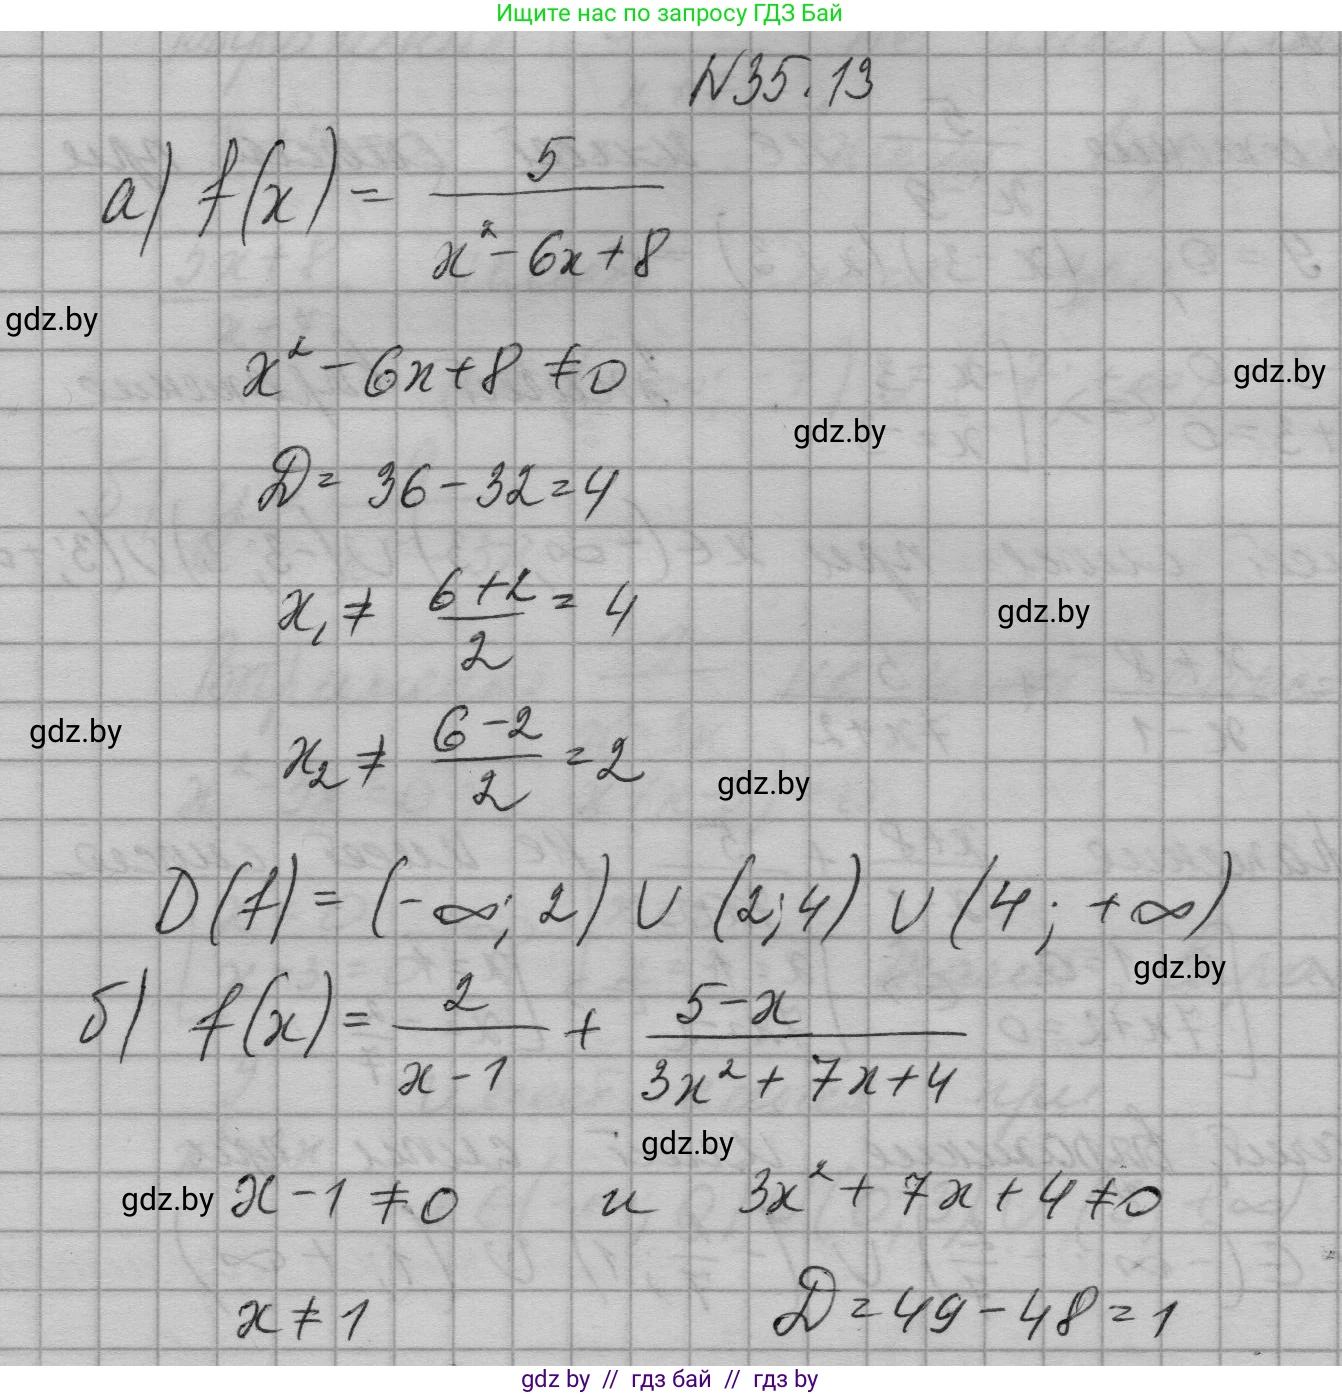 Ищите нас по запросу ГДЗ Бай
N35.13
а) f(x) = 5/(x² - 6x + 8)
gdz.by
x² - 6x + 8 ≠ 0
gdz.by
gdz.by
D = 36 - 32 = 4
x₁ ≠ (6 + 2)/2 = 4
gdz.by
x₂ ≠ (6 - 2)/2 = 2
gdz.by
gdz.by
D(f) = (-∞; 2) ∪ (2; 4) ∪ (4; +∞)
gdz.by
б) f(x) = 2/(x - 1) + (5 - x)/(3x² + 7x + 4)
gdz.by
gdz.by
x - 1 ≠ 0 и 3x² + 7x + 4 ≠ 0
x ≠ 1 D = 49 - 48 = 1
gdz by // гдз бай // гдз by